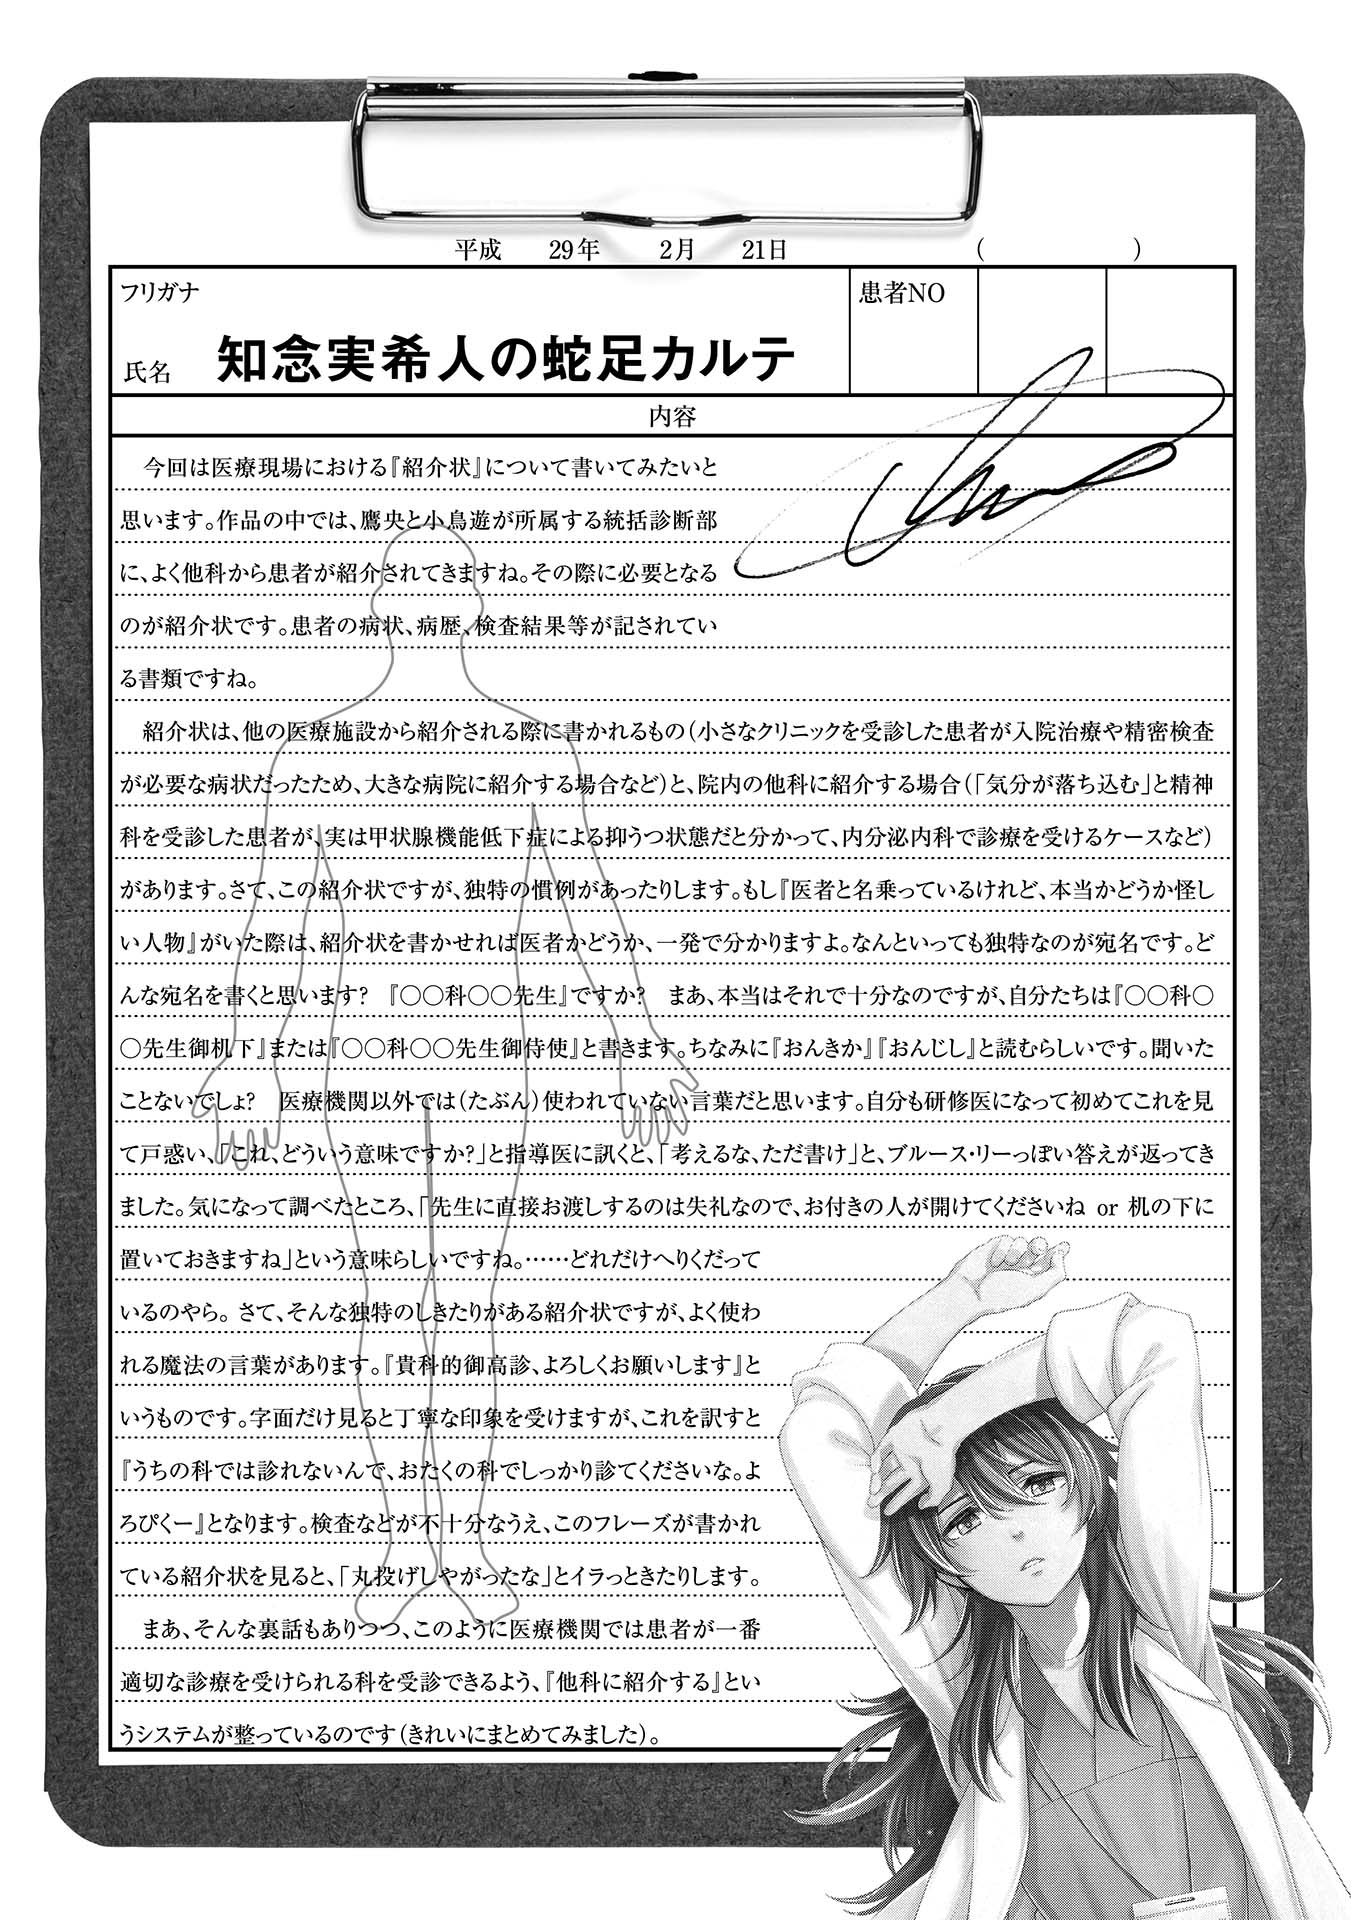 平成 29年 2月 21日 ( )
フリガナ
患者NO
氏名 知念実希人の蛇足カルテ
内容
今回は医療現場における『紹介状』について書いてみたいと
思います。作品の中では、鷹央と小鳥遊が所属する統括診断部
に、よく他科から患者が紹介されてきますね。その際に必要となる
のが紹介状です。患者の病状、病歴、検査結果等が記されてい
る書類ですね。
紹介状は、他の医療施設から紹介される際に書かれるもの(小さなクリニックを受診した患者が入院治療や精密検査
が必要な病状だったため、大きな病院に紹介する場合など)と、院内の他科に紹介する場合(「気分が落ち込む」と精神
科を受診した患者が、実は甲状腺機能低下症による抑うつ状態だと分かって、内分泌内科で診療を受けるケースなど)
があります。さて、この紹介状ですが、独特の慣例があったりします。もし『医者と名乗っているけれど、本当かどうか怪し
い人物』がいた際は、紹介状を書かせれば医者かどうか、一発で分かりますよ。なんといっても独特なのが宛名です。ど
んな宛名を書くと思います? 『〇〇科〇〇先生』ですか? まあ、本当はそれで十分なのですが、自分たちは『〇〇科〇
〇先生御机下』または『〇〇科〇〇先生御侍使』と書きます。ちなみに『おんきか』『おんじし』と読むらしいです。聞いた
ことないでしょ? 医療機関以外では(たぶん)使われていない言葉だと思います。自分も研修医になって初めてこれを見
て戸惑い、「これ、どういう意味ですか?」と指導医に訊くと、「考えるな、ただ書け」と、ブルース・リーっぽい答えが返ってき
ました。気になって調べたところ、「先生に直接お渡しするのは失礼なので、お付きの人が開けてくださいね or 机の下に
置いておきますね」という意味らしいですね。……どれだけへりくだって
いるのやら。さて、そんな独特のしきたりがある紹介状ですが、よく使わ
れる魔法の言葉があります。『貴科的御高診、よろしくお願いします』と
いうものです。字面だけ見ると丁寧な印象を受けますが、これを訳すと
『うちの科では診れないんで、おたくの科でしっかり診てくださいな。よ
ろぴくー』となります。検査などが不十分なうえ、このフレーズが書かれ
ている紹介状を見ると、「丸投げしやがったな」とイラっときたりします。
まあ、そんな裏話もありつつ、このように医療機関では患者が一番
適切な診療を受けられる科を受診できるよう、『他科に紹介する』とい
うシステムが整っているのです(きれいにまとめてみました)。